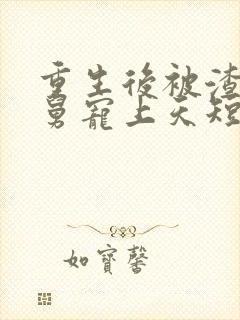 重生後被渣
舅寵上天短
如寶馨